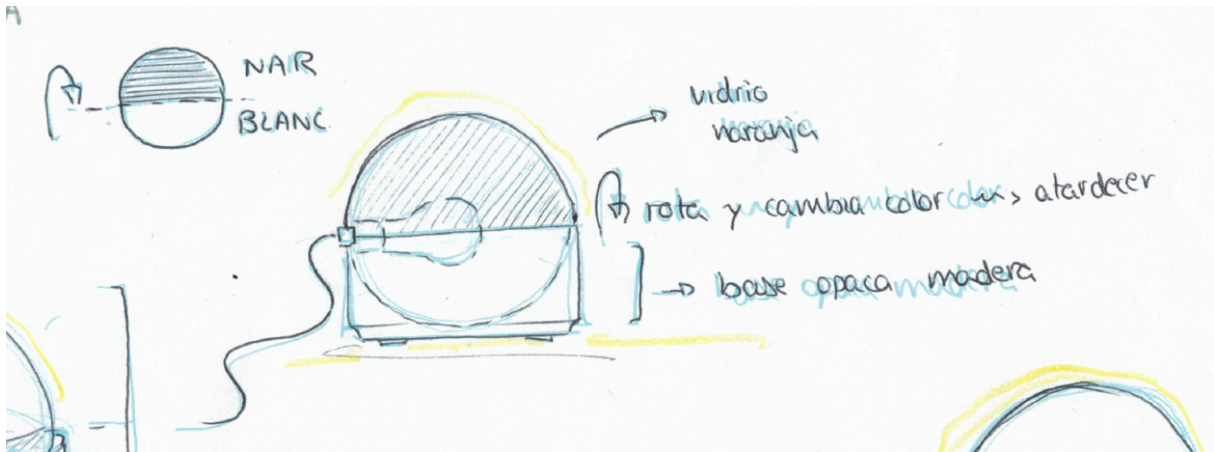 NAR
BLANC
vidrio
naranja
rota y cambia color atardecer
base opaca madera